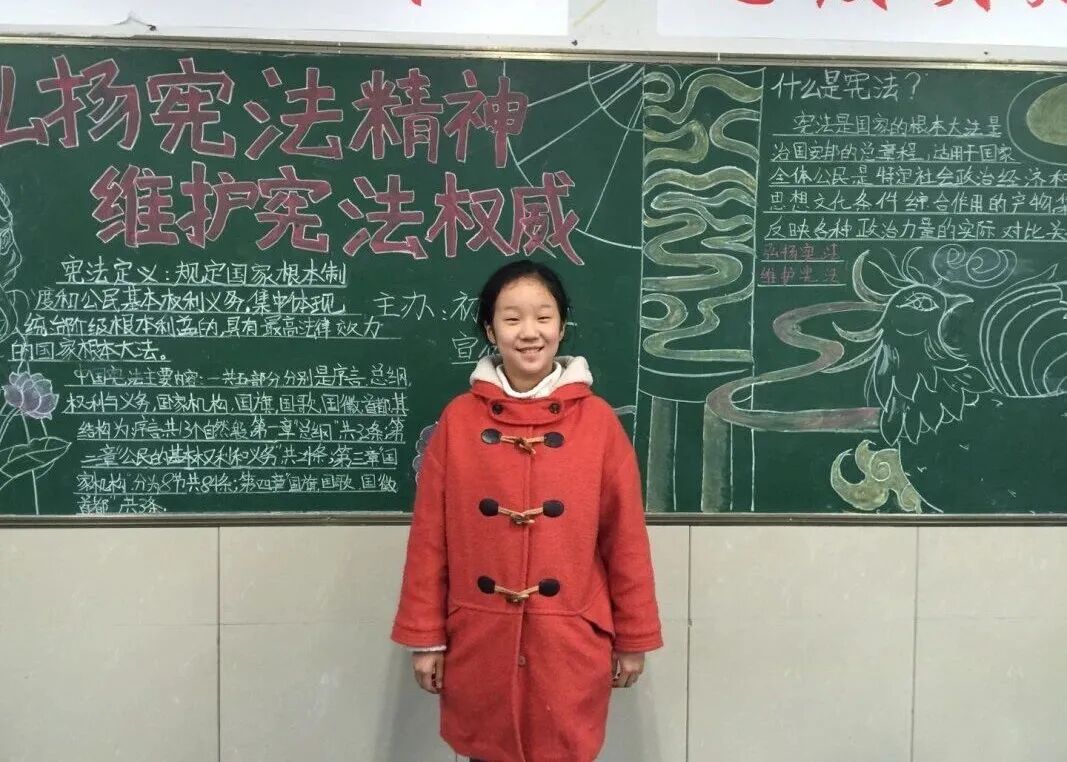 弘扬宪法精神
维护宪法权威
宪法定义:规定国家根本制
度和公民基本权利义务,集中体现
统治阶级根本利益的,具有最高法律效力
的国家根本大法。
主办:初
宣
中国宪法主要内容:一共五部分分别是序言,总纲,
权利与义务,国家机构,国旗,国歌,国徽,首都,其
结构为序言共13个自然段,第一章"总纲"共32条,第
二章"公民的基本权利和义务"共24条;第三章国
家机构"分为8节共84条;第四章"国旗,国歌,国徽
首都"共3条.
什么是宪法?
宪法是国家的根本大法是
治国安邦的总章程,适用于国家
全体公民是特定社会政治经济和
思想文化条件综合作用的产物
反映各种政治力量的实际对比关
弘扬宪法
维护宪法